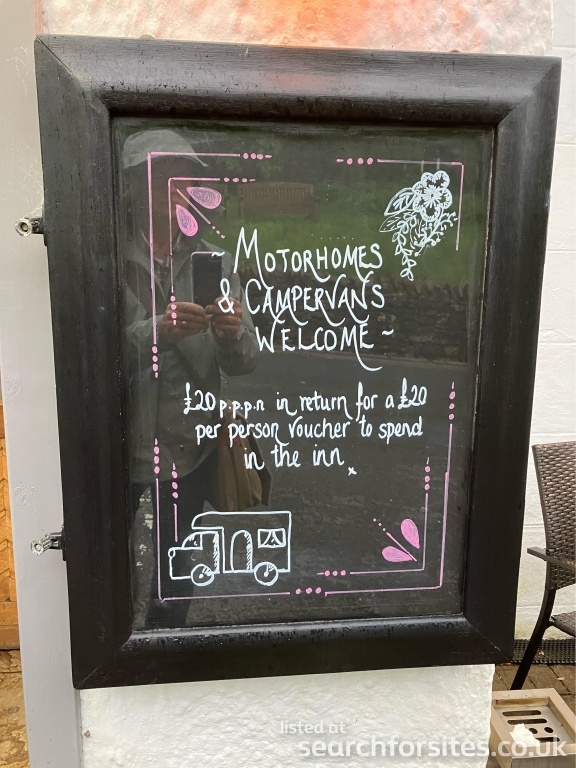 ~ MOTORHOMES
& CAMPERVANS
WELCOME ~
£20 p.p.p.n in return for a £20
per person voucher to spend
in the inn x
listed at
searchforsites.co.uk